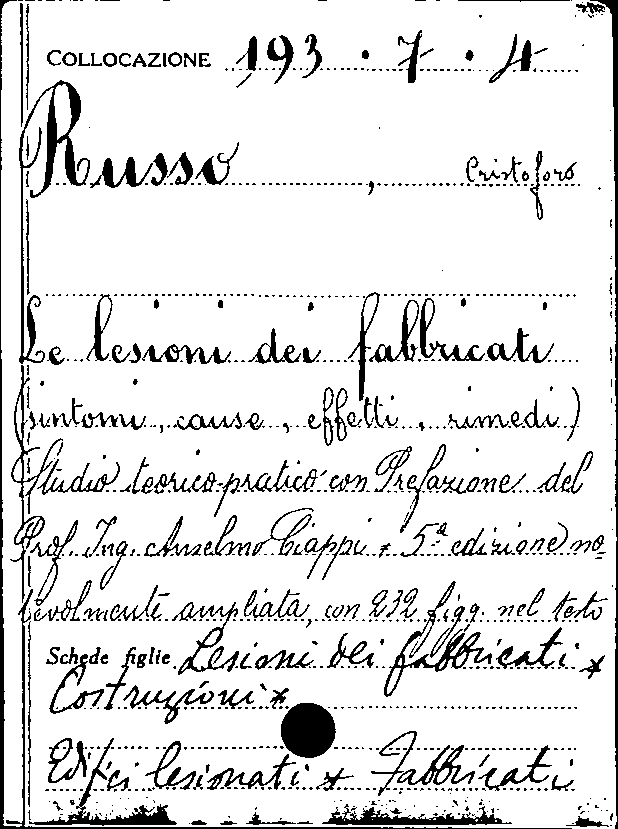 COLLOCAZIONE 193 · 7 · 4
Russo, Cristoforo
Le lesioni dei fabbricati
(sintomi, cause, effetti, rimedi)
Studio teorico-pratico con Prefazione del
Prof. Ing. Anselmo Ciappi * 5ª edizione no-
tevolmente ampliata, con 232 figg. nel testo
Schede figlie Lesioni dei fabbricati *
Costruzioni *
Edifici lesionati * Fabbricati